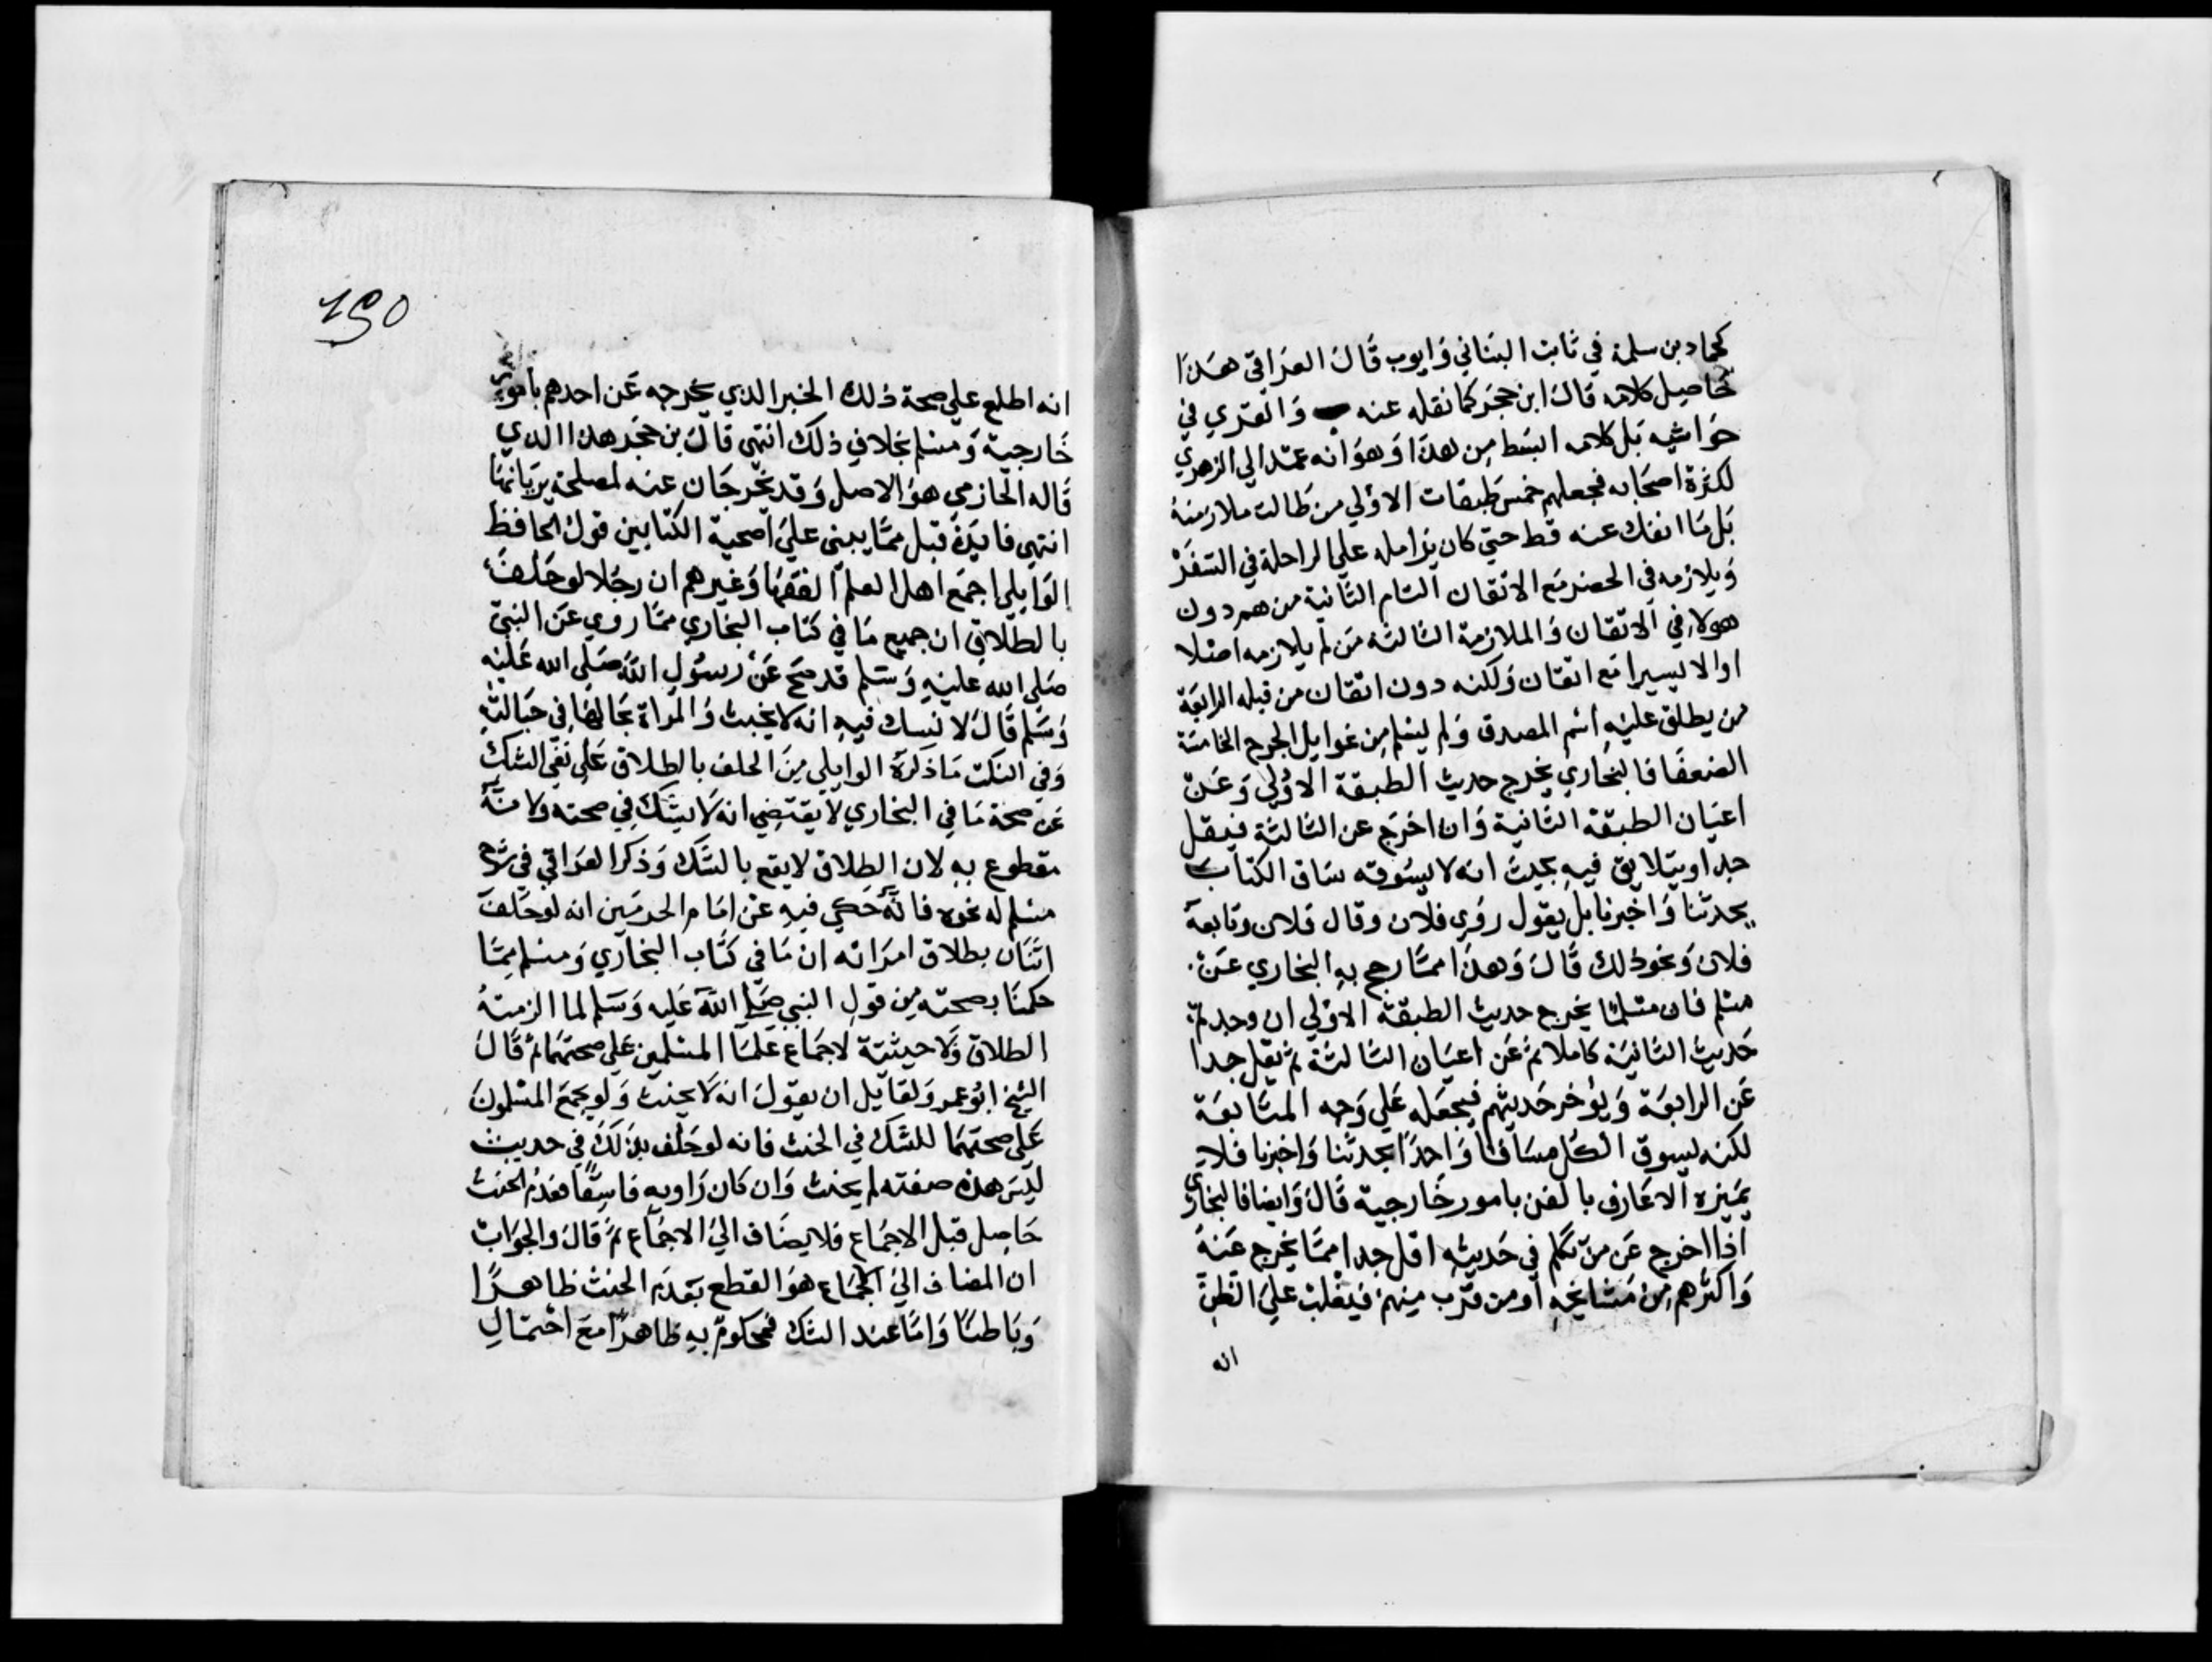 كحماد بن سلمة في ثابت البناني وايوب قال العراقي هذا
حاصيل كلامه قال ابن حجر كما نقله عنه والغزي في
حواشيه بل كلامه ابسط من هذا وهو انه عمد الي الزهري
لكثرة اصحابه فجعلهم خمس طبقات الاولي من طالت ملازمته
بل ما انفك عنه قط حتي كان يزامله علي الراحلة في السفر
ويلازمه في الحضر مع الاتقان التام الثانية من هم دون
هولاء في الاتقان والملازمة الثالثة من لم يلازمه اصلا
او الا يسيرا مع اتقان ولكنه دون اتقان من قبله الرابعة
من يطلق عليه اسم الصدق ولم يسلم من غوايل الجرح الخامسة
الضعفا فالبخاري يخرج حديث الطبقة الاولي وعن
اعيان الطبقة الثانية وان اخرج عن الثالثة فيقل
جدا ويتلايق فيه بحيث انه لا يسوقه ساق الكتاب
بحدثنا واخبرنا بل يقول روي فلان وقال فلان وتابعه
فلان ونحو ذلك قال وهذا مما رجح به البخاري عن
مسلم فان مسلما يخرج حديث الطبقة الاولي ان وجد ثم
حديث الثانية كاملا ثم عن اعيان الثالثة ثم يقل جدا
عن الرابعة ويؤخر حديثهم فيجعله علي وجه المتابعة
لكنه يسوق الكل مساقا واحدا بحدثنا واخبرنا فلا
يميزه الا عارف بالفن بامور خارجية قال وايضا فالبخاري
اذا اخرج عن من تكلم في حديثه اقل جدا مما يخرج عنه
واكثرهم من مشايخه او من قرب منهم فيغلب علي الظن
انه
١٢٥
انه اطلع علي صحة ذلك الخبر الذي يخرجه عن احدهم بامور
خارجية ومسلم بخلاف ذلك انتهي قال بن حجر هذا الذي
قاله الحازمي هو الاصل وقد يخرجان عنه لمصلحة يريانها
انتهي فايدة قيل مما يبني علي اصحية الكتابين قول الحافظ
الوايلي اجمع اهل العلم الفقها وغيرهم ان رجلا لو حلف
بالطلاق ان جميع ما في كتاب البخاري مما روي عن النبي
صلي الله عليه وسلم قد صح عن رسول الله صلي الله عليه
وسلم قال لا نسك فيه انه لا يحنث والمراة بحالها في حبالته
وفي النكت ما ذكره الوايلي من الحلف بالطلاق علي نفي الشك
عن صحة ما في البخاري لا يقتضي انه لا يشك في صحته ولا انه
مقطوع به لان الطلاق لا يقع بالشك وذكر العراقي في شرح
مسلم له نحوه فانه حكي فيه عن امام الحرمين انه لو حلف
انسان بطلاق امراته ان ما في كتاب البخاري ومسلم مما
حكمنا بصحته من قول النبي صلي الله عليه وسلم لما الزمته
الطلاق ولا حيثيته لاجماع علما المسلمين علي صحتهما ثم قال
الشيخ ابو عمر ولقايل ان يقول انه لا يحنث ولو يجمع المسلمون
علي صحتهما للشك في الحنث فانه لو حلف بذلك في حديث
ليس هذه صفته لم يحنث وان كان راويه فاسقا فعدم الحنث
حاصل قبل الاجماع فلا يضاف الي الاجماع ثم قال والجواب
ان المضاف الي الاجماع هو القطع بعدم الحنث ظاهرا
وباطنا واما عند الشك فمحكوم به ظاهرا مع احتمال